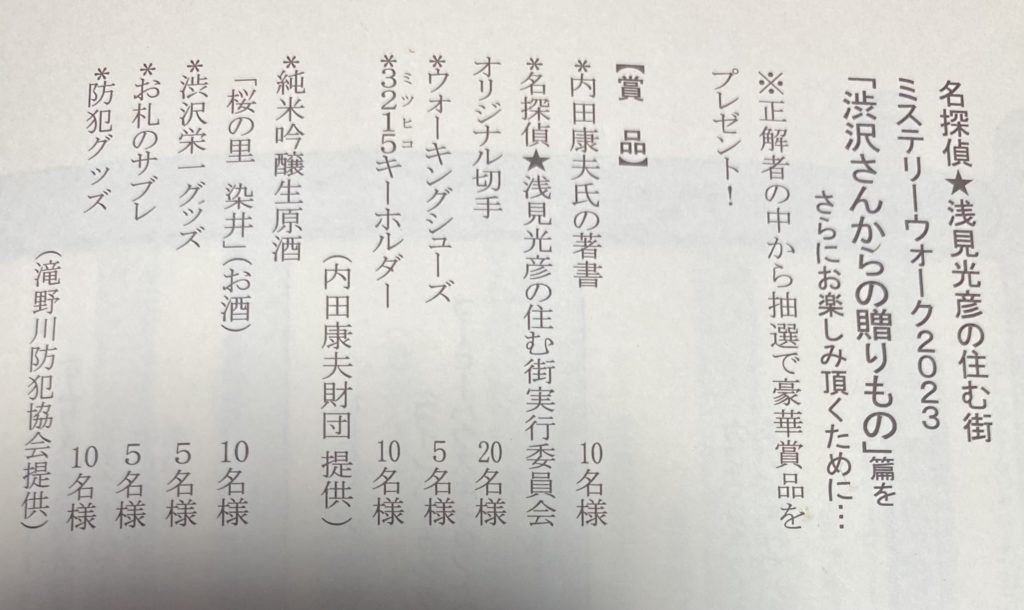 名探偵★浅見光彦の住む街
ミステリーウォーク2023
「渋沢さんからの贈りもの」篇を
さらにお楽しみ頂くために…
※正解者の中から抽選で豪華賞品を
プレゼント！
【賞 品】
*内田康夫氏の著書 10名様
*名探偵★浅見光彦の住む街実行委員会
オリジナル切手 20名様
*ウオーキングシューズ 5名様
*3215キーホルダー 10名様
ミツヒコ
（内田康夫財団 提供）
*純米吟醸生原酒
「桜の里 染井」（お酒） 10名様
*渋沢栄一グッズ 5名様
*お札のサブレ 5名様
*防犯グッズ 10名様
（滝野川防犯協会提供）